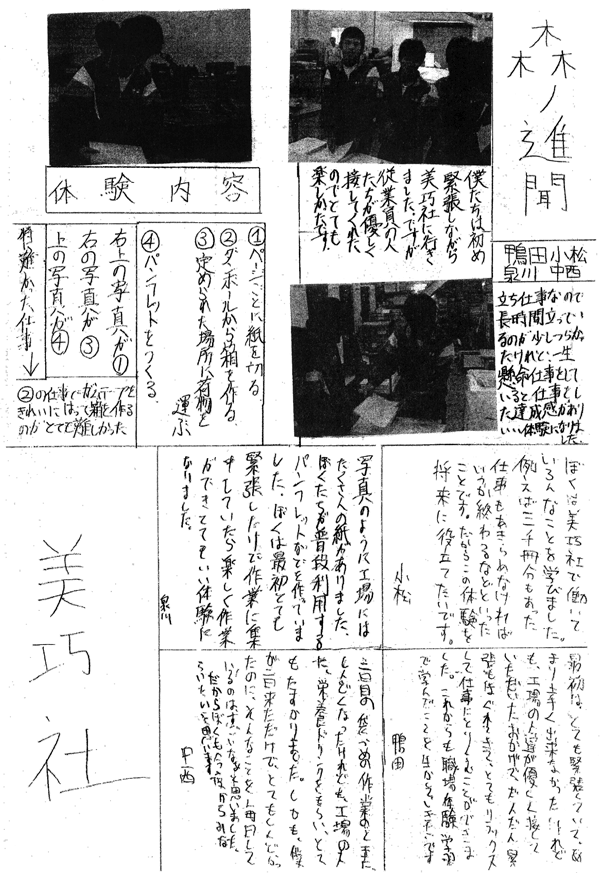 森ノ進聞
鴨田 小松
泉川 中西
僕たちは初め
緊張しながら
美巧社に行き
ました。ですが
従業員の人
たちが優しく
接してくれた
のでとても
楽しめたです。
体験内容
①ページごとに紙を切る
②ダンボールから箱を作る
③定められた場所に荷物を
運ぶ
④パンフレットをつくる
右上の写真が①
右の写真が③
上の写真が④
特に難かった仕事
ぼくは美巧社で働いて
いろんなことを学びました。
例えば二千冊分もあった
仕事もあきらめなければ
いつか終わるなどといった
ことです。だからこの体験を
将来に役立てたいです。
小松
写真のように工場には
たくさんの紙がありました。
ぼくたちが普段利用する
パンフレットなどを作っていま
した。ぼくは最初とても
緊張したけど作業に集
中していたら楽しく作業
ができてとてもいい体験に
なりました。
泉川
最初は、とても緊張していて、あ
まり上手く出来なかったけれど
も、工場の人達が優しく接して
いただいたおかげで、だんだん緊
張もほぐれてきて、とてもリラックス
して仕事にとりくむことができま
した。これからも職場体験学習
で学んだことを生かしていきたいです
鴨田
三日目の袋づめ作業のときに、
しんどくなったけれども、工場の人
に、栄養ドリンクをもらい、とて
もたすかりました。しかも、僕
が三日来ただけで、とてもしんどかっ
たのに、そんなことを毎日して
いるのはすごいなあと思いました。
だからぼくも今度からみな
らいたいと思います。
中西
美巧社